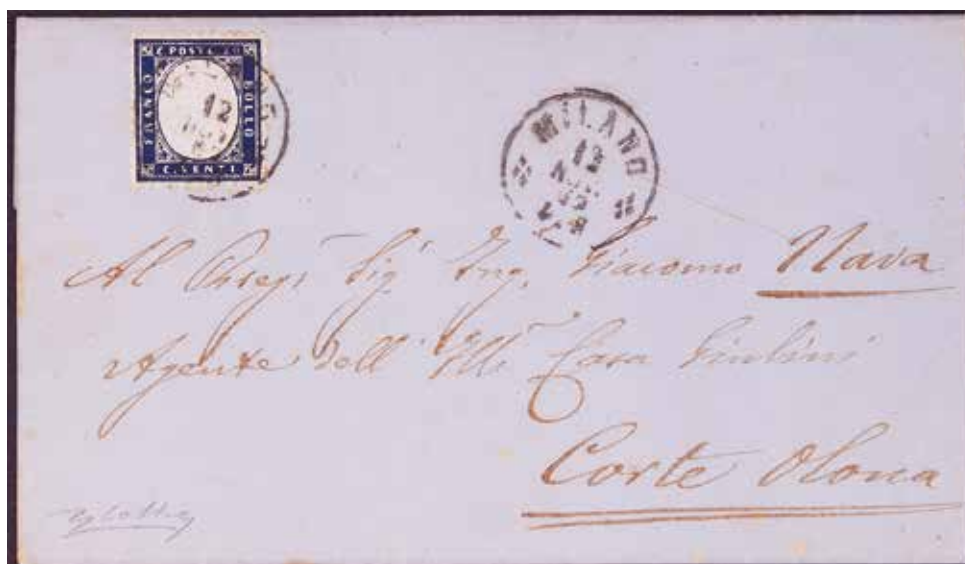 C. POSTA 20
FRANCO
BOLLO
C. VENTI
12
MILANO
12
Al Sig. Ing. Giacomo Nava
Agente dell' Ill. Casa Giulini
Corte Olona